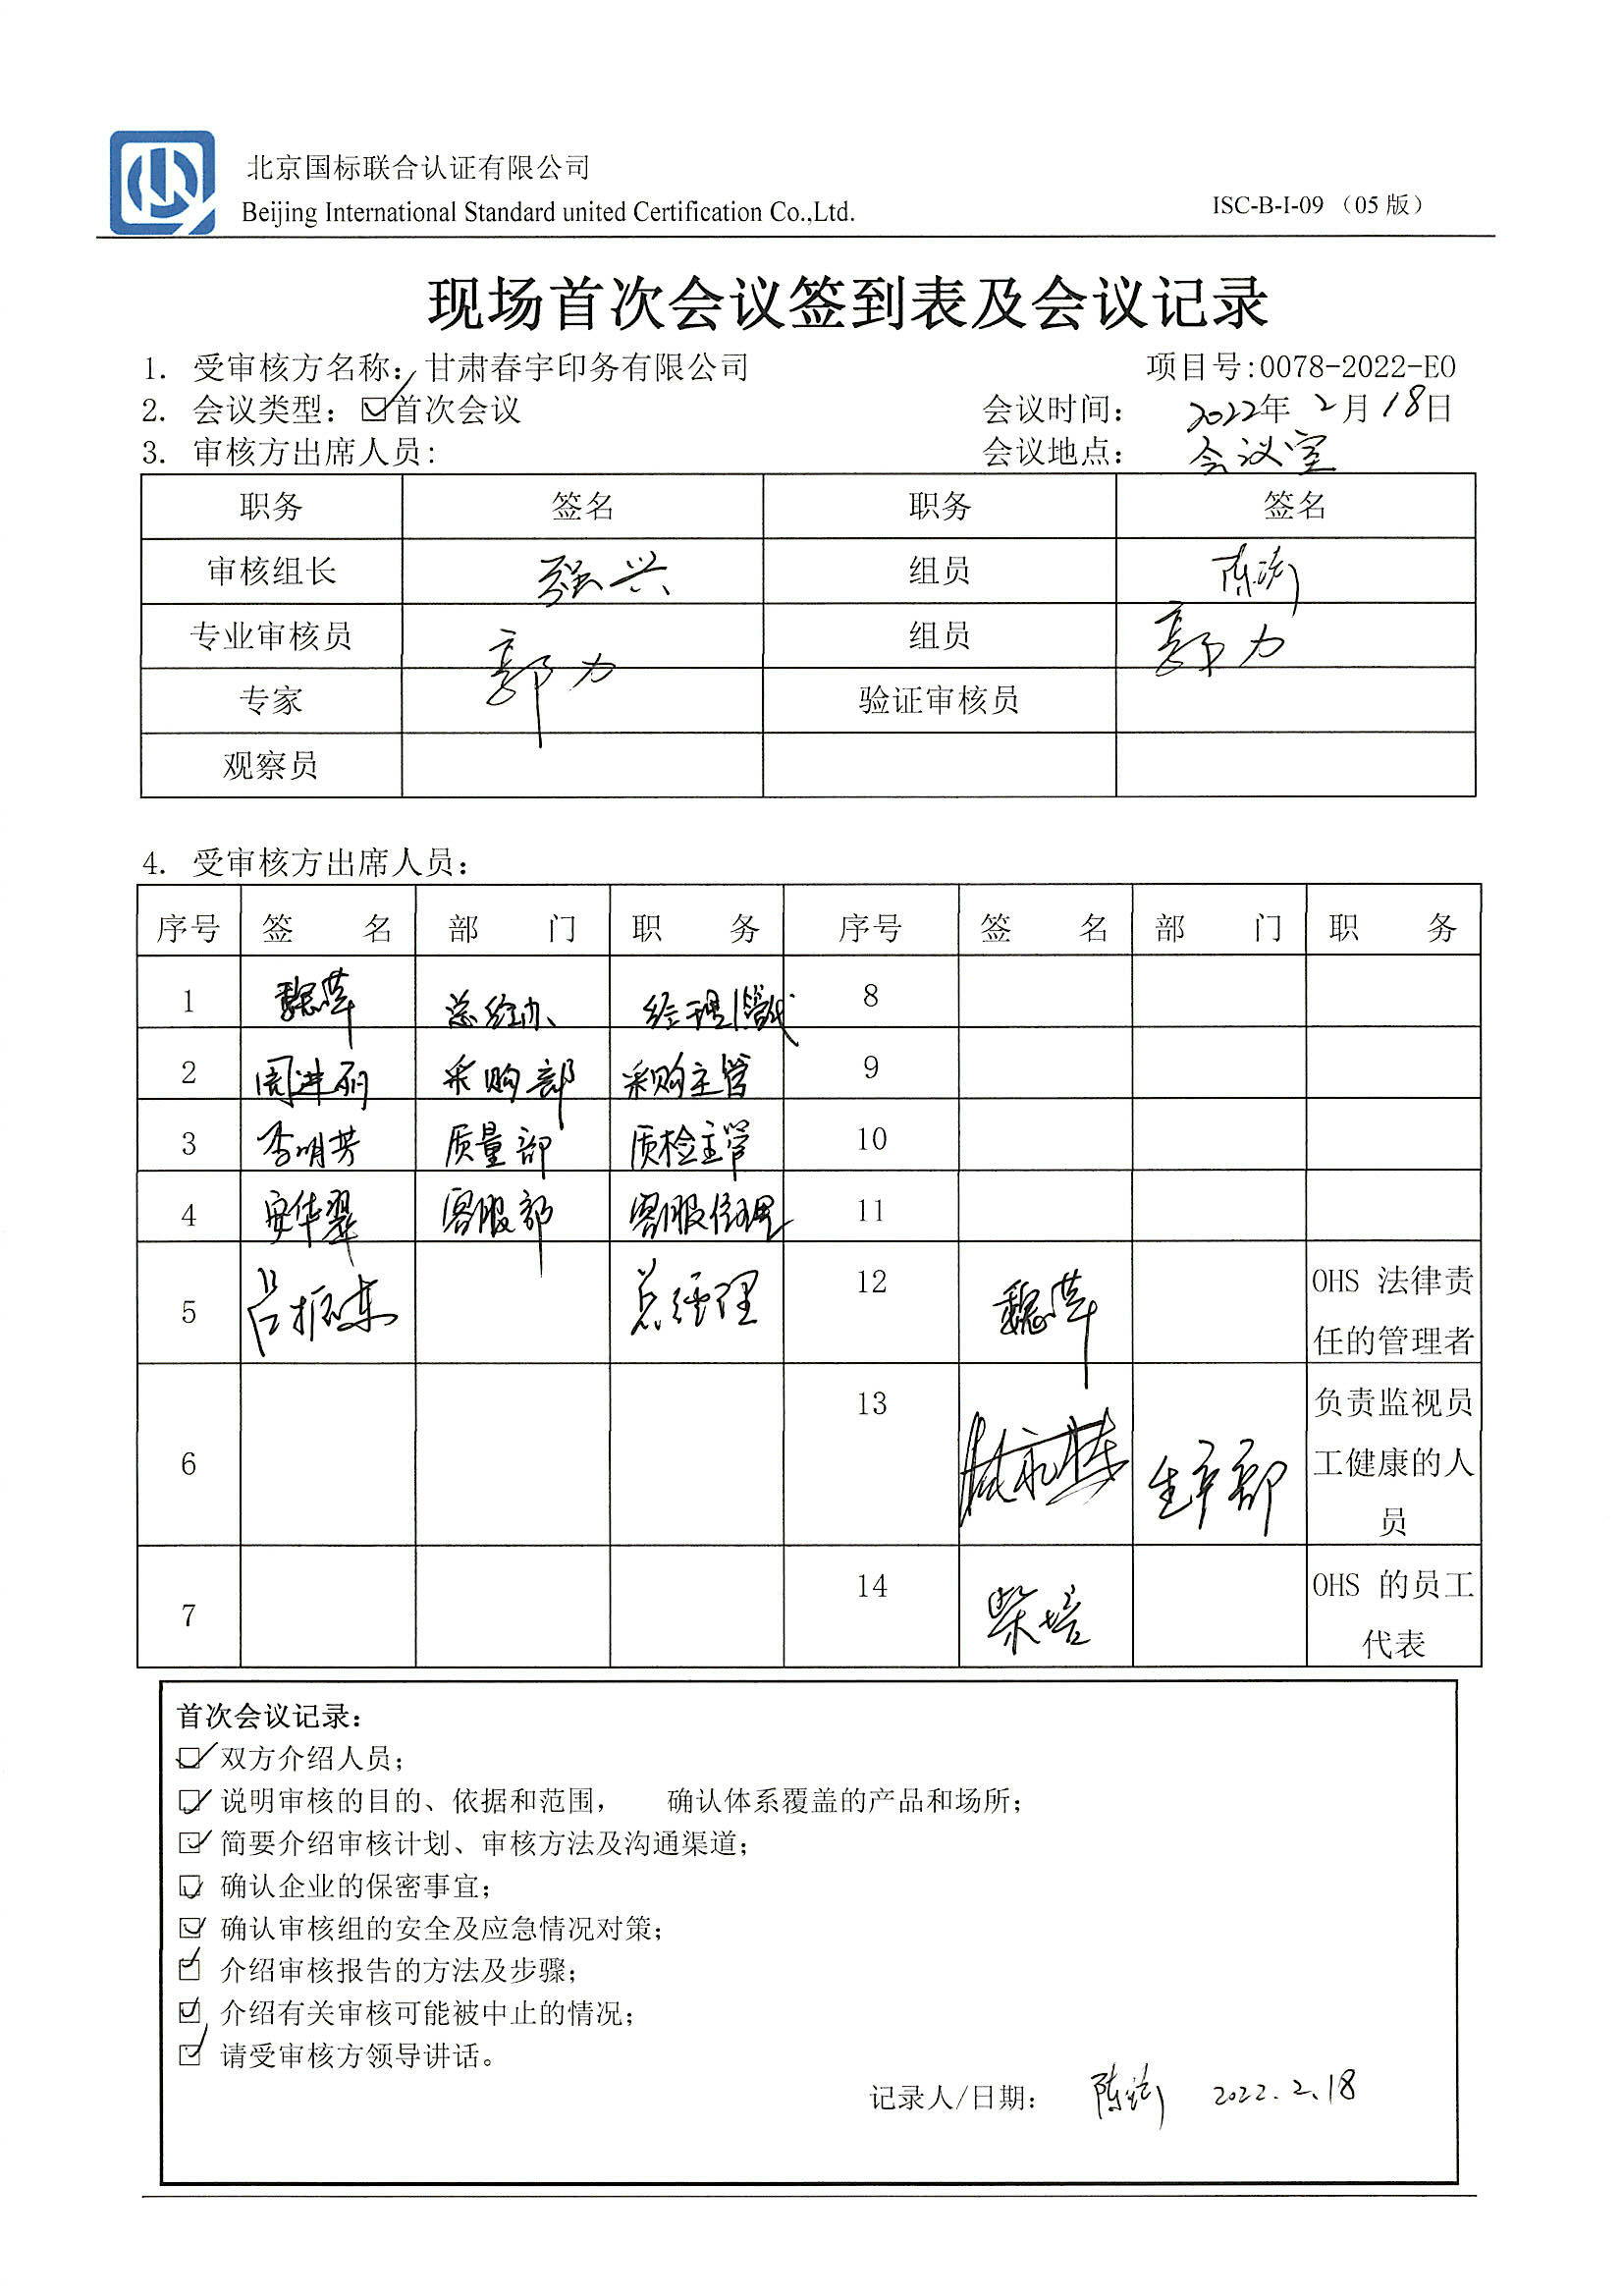 北京国标联合认证有限公司
Beijing International Standard united Certification Co.,Ltd.
ISC-B-I-09 （05 版）
现场首次会议签到表及会议记录
1. 受审核方名称：甘肃春宇印务有限公司 项目号:0078-2022-EO
2. 会议类型：☑首次会议 会议时间： 2022年 2月 18日
3. 审核方出席人员： 会议地点： 会议室
职务 签名 职务 签名
审核组长 强兴 组员 陈
专业审核员 郭力 组员 郭力
专家 验证审核员
观察员
4. 受审核方出席人员：
序号 签 名 部 门 职 务 序号 签 名 部 门 职 务
1 魏萍 总经办 经理 8
2 周进丽 采购部 采购主管 9
3 李明芳 质量部 质检主管 10
4 安华翠 客服部 客服经理 11
5 吕振栋 总经理 12 魏萍 OHS 法律责
任的管理者
6 13 生产部 负责监视员
工健康的人
员
7 14 柴培 OHS 的员工
代表
首次会议记录：
☑ 双方介绍人员；
☑ 说明审核的目的、依据和范围， 确认体系覆盖的产品和场所；
☑ 简要介绍审核计划、审核方法及沟通渠道；
☑ 确认企业的保密事宜；
☑ 确认审核组的安全及应急情况对策；
☑ 介绍审核报告的方法及步骤；
☑ 介绍有关审核可能被中止的情况；
☑ 请受审核方领导讲话。
记录人/日期： 陈 2022.2.18